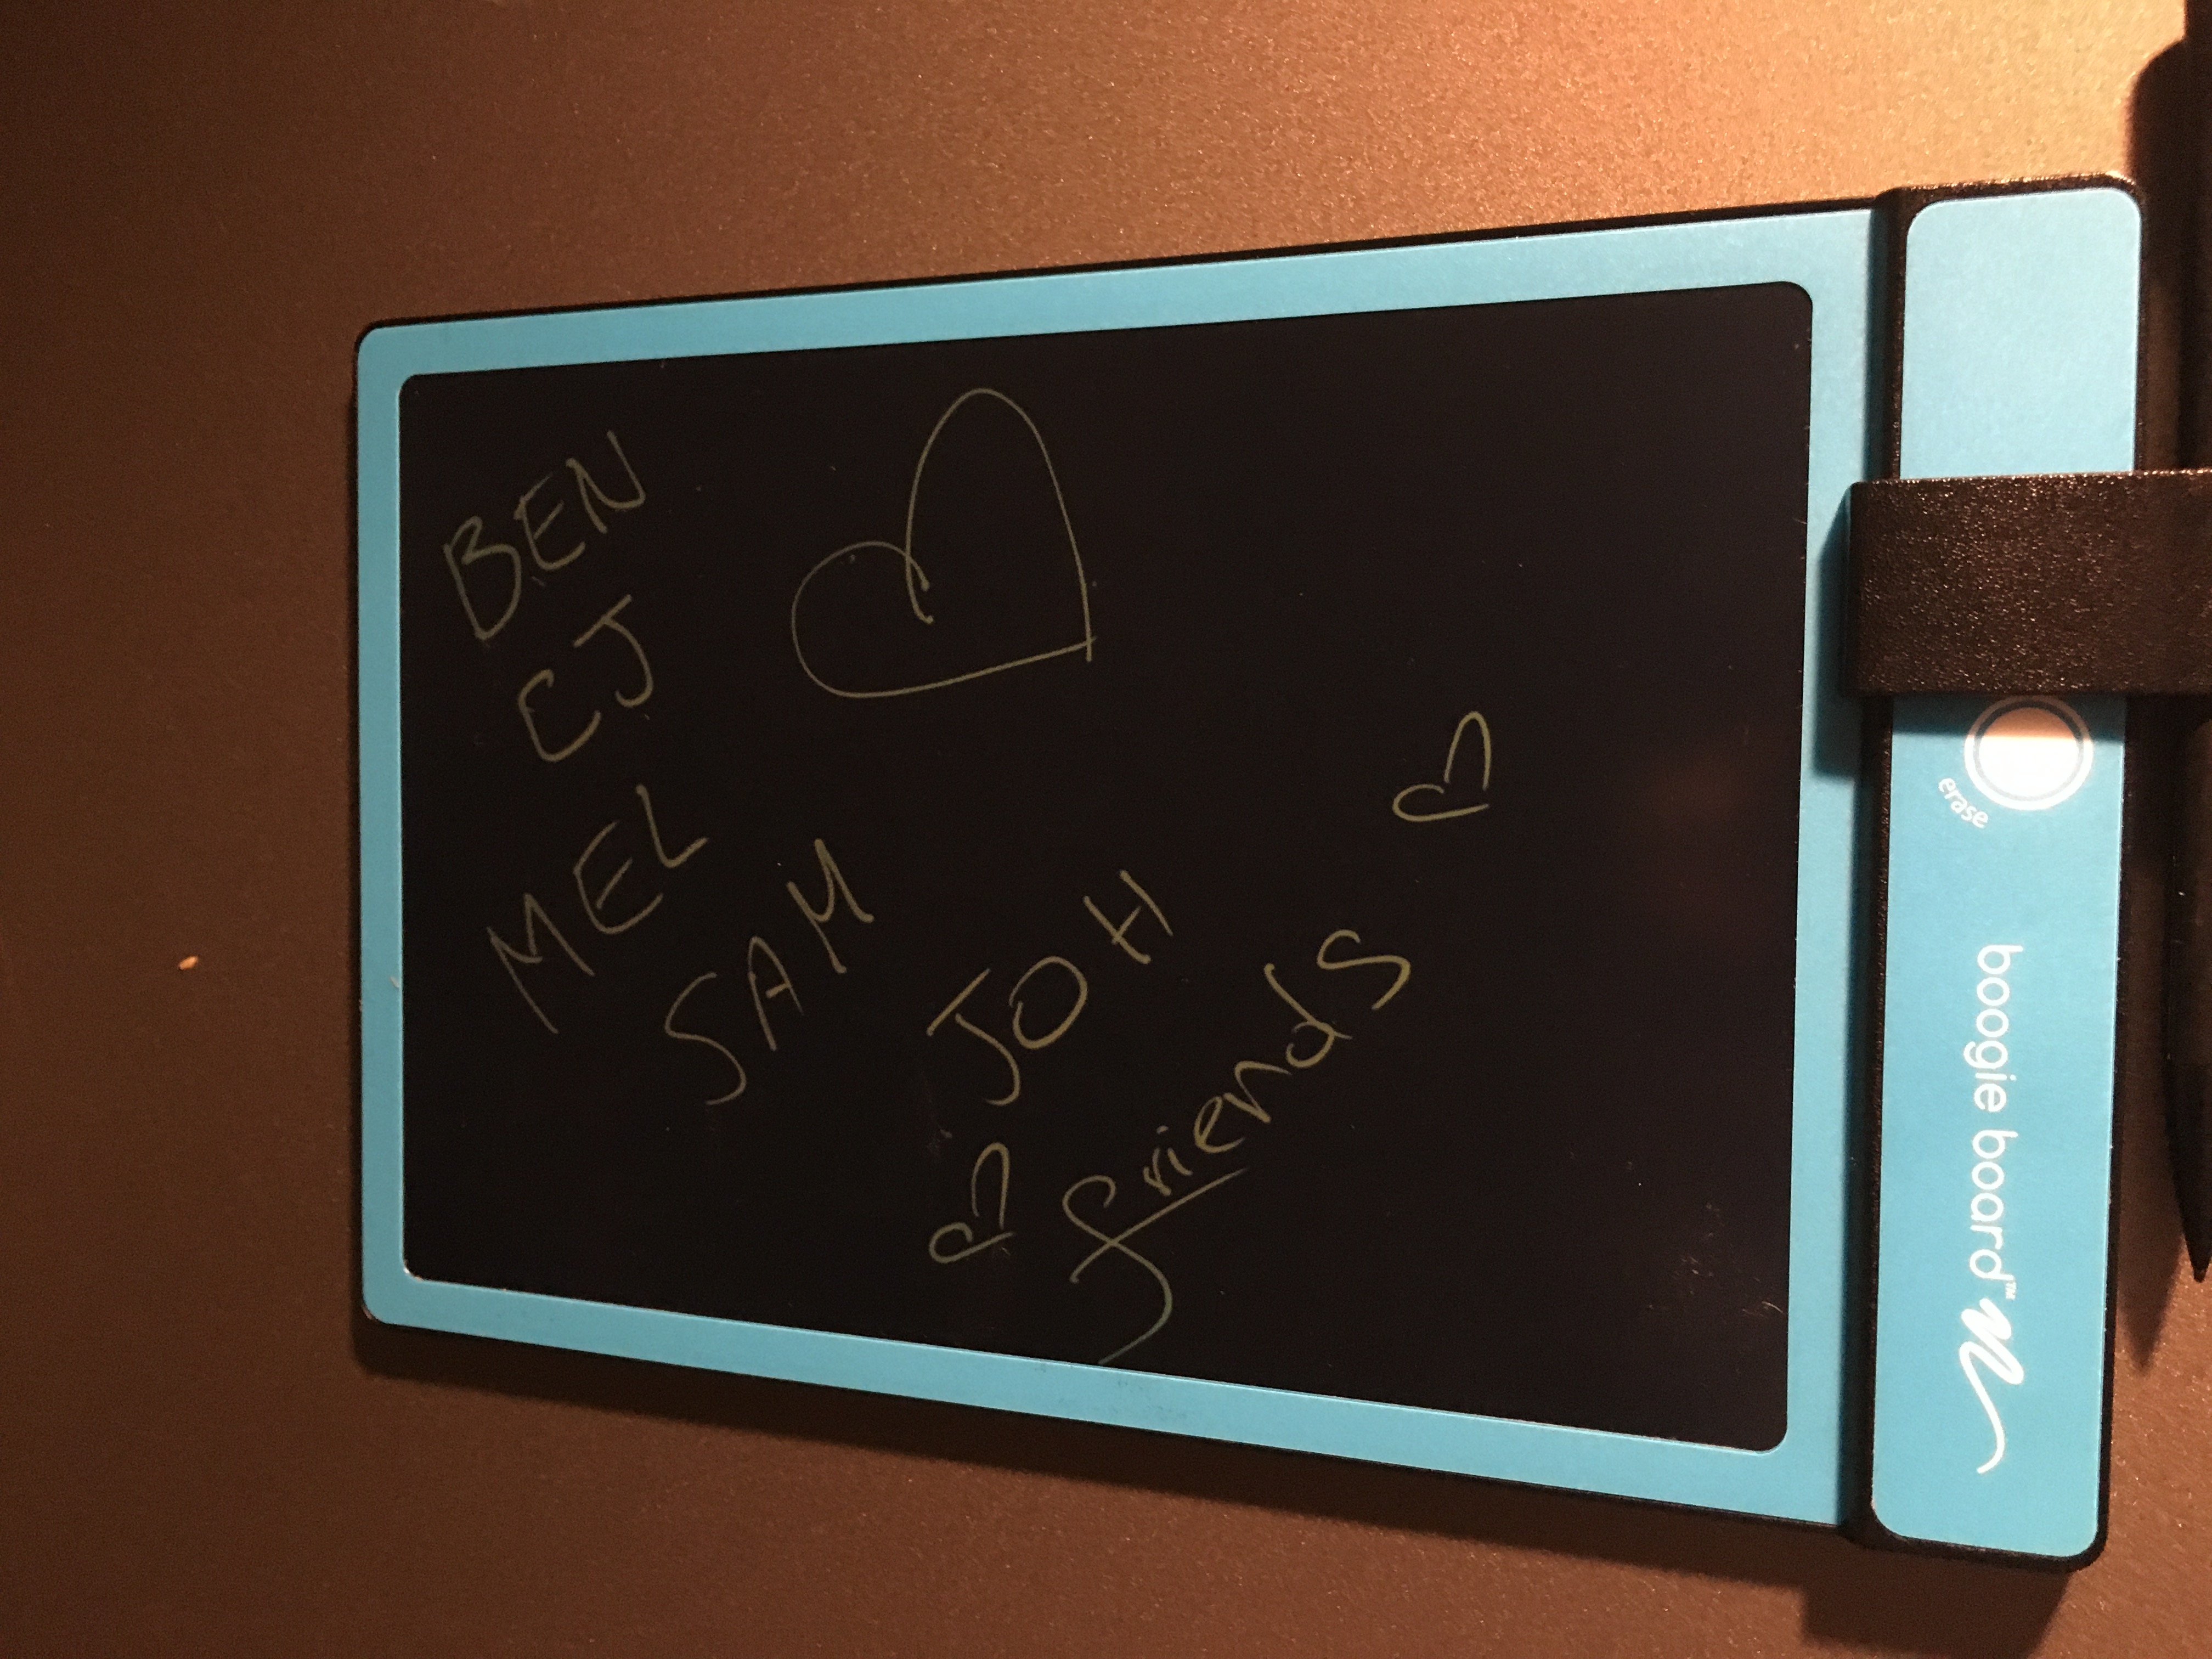 BEN
CJ
MEL
SAM
JOH
friends
erase
boogie board™